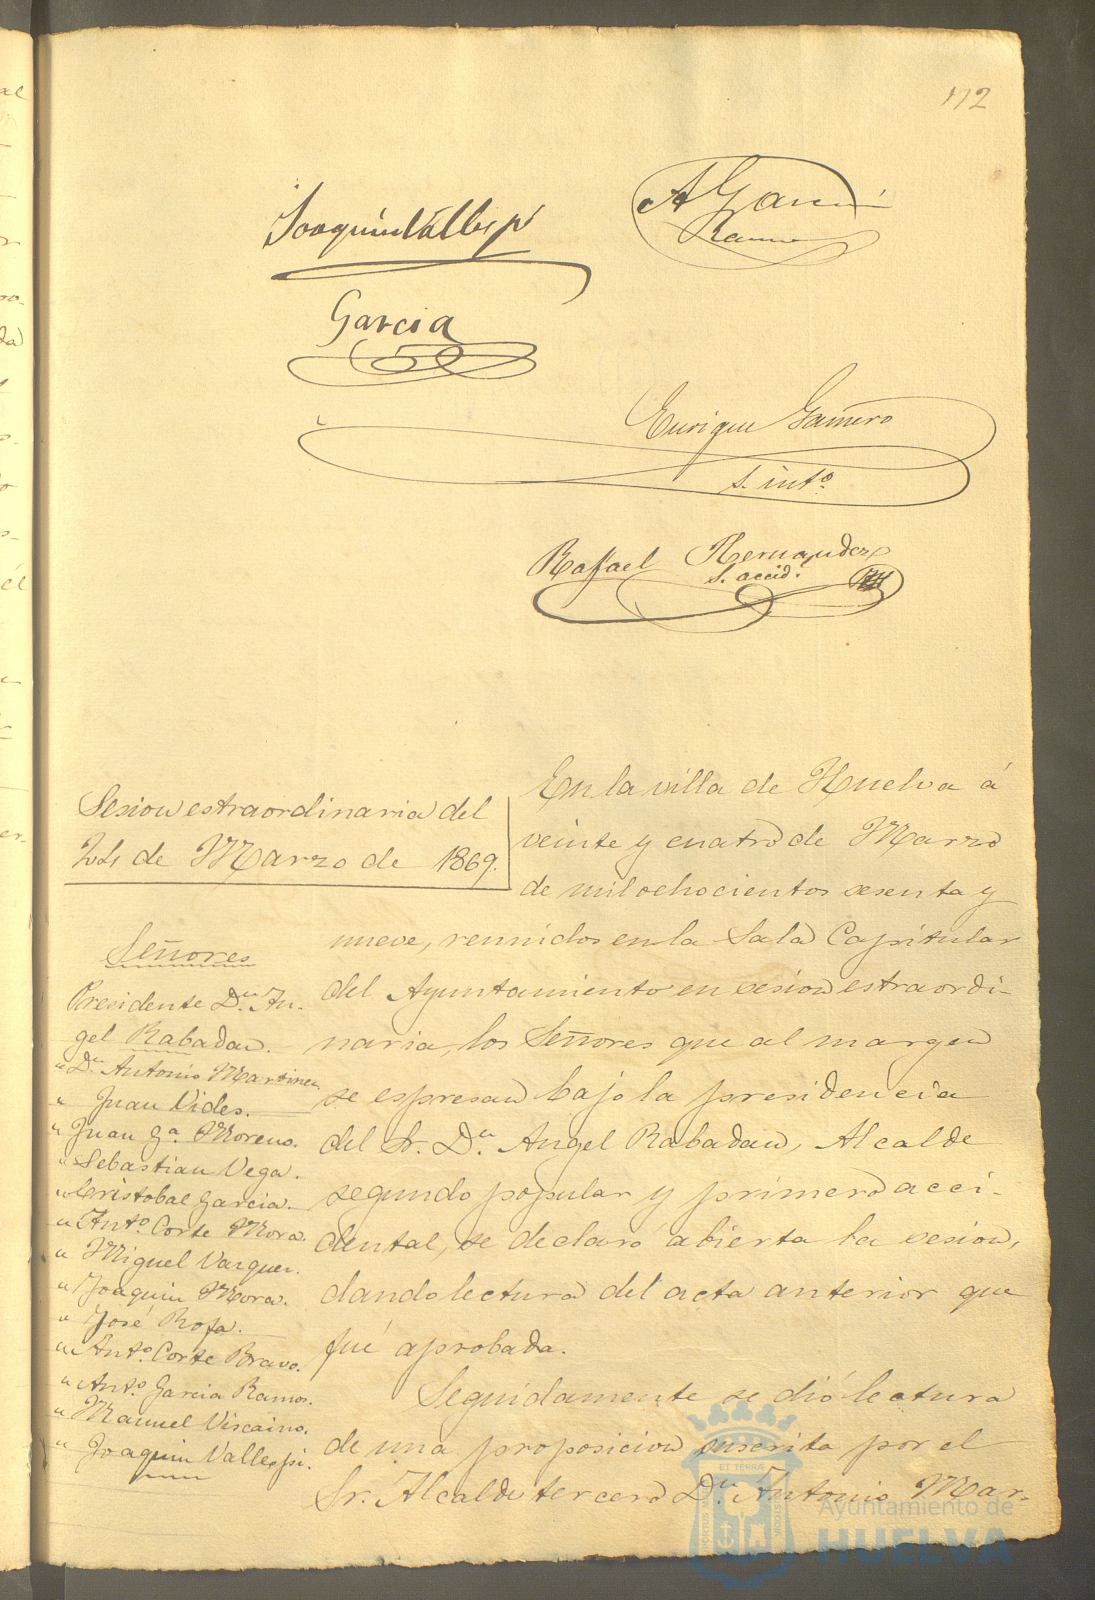 112
Joaquin Vallespi
A Garcia
Ramos
Garcia
Enrique Gamero
s. intº
Rafael Hernandez
s. accid.
Sesion estraordinaria del
24 de Marzo de 1869.
Señores
Presidente Dn. An-
gel Rabadan.
" Dn. Antonio Martinez
" Juan Vides.
" Juan Gª Moreno.
" Sebastian Vega.
" Cristobal Garcia.
" Antº Corte Mora.
" Miguel Vazquez.
" Joaquin Mora.
" José Rofa.
" Antº Corte Bravo.
" Antº Garcia Ramos.
" Manuel Viscaino.
" Joaquin Vallespi.
En la villa de Huelva á
veinte y cuatro de Marzo
de mil ochocientos sesenta y
nueve, reunidos en la Sala Capitular
del Ayuntamiento en sesion estraordi-
naria, los Señores que al margen
se espresan bajo la presidencia
del Sr. Dn. Angel Rabadan, Alcalde
segundo popular y primero acci-
dental, se declaró abierta la sesion,
dando lectura del acta anterior que
fué aprobada.
Seguidamente se dió lectura
de una proposicion suscrita por el
Sr. Alcalde tercero Dn. Antonio Mar-
Ayuntamiento de
HUELVA